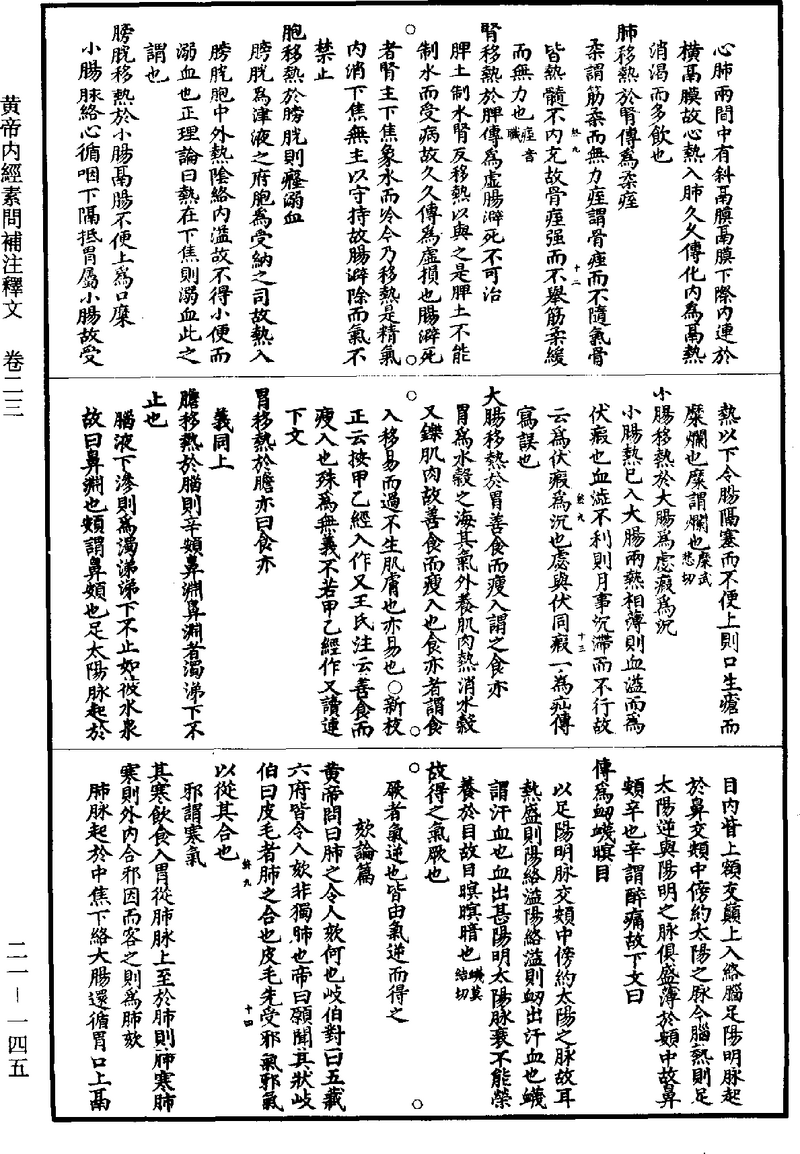 黄帝内經素問補注釋文　卷二三
二一—一四五
心肺兩間中有斜鬲膜鬲膜下際内連於
橫鬲膜故心熱入肺久久傳化内為鬲熱
消渴而多飲也
肺移熱於腎傳為柔痓
柔謂筋柔而無力痓謂骨痓而不隨氣骨
皆熱髓不内充故骨痓强而不舉筋柔緩
而無力也痓音職
腎移熱於脾傳為虛腸澼死不可治
脾土制水腎反移熱以與之是脾土不能
制水而受病故久久傳為虛損也腸澼死
者腎主下焦象水而冷今乃移熱是精氣
内消下焦無主以守持故腸澼除而氣不
禁止
胞移熱於膀胱則癃溺血
膀胱為津液之府胞為受納之司故熱入
膀胱胞中外熱陰絡内溢故不得小便而
溺血也正理論曰熱在下焦則溺血此之
謂也
膀胱移熱於小腸鬲腸不便上為口糜
小腸脉絡心循咽下隔抵胃屬小腸故受
熱以下令腸隔塞而不便上則口生瘡而
糜爛也糜謂爛也糜武悲切
小腸移熱於大腸為虙瘕為沉
小腸熱已入大腸兩熱相薄則血溢而為
伏瘕也血澁不利則月事沉滯而不行故
云為伏瘕為沉也虙與伏同瘕一為疝傳
寫誤也
大腸移熱於胃善食而瘦入謂之食亦
胃為水穀之海其氣外養肌肉熱消水穀
又鑠肌肉故善食而瘦入也食亦者謂食
入移易而過不生肌膚也亦易也○新校
正云按甲乙經入作又王氏注云善食而
瘦入也殊為無義不若甲乙經作又讀連
下文
胃移熱於膽亦曰食亦
義同上
膽移熱於腦則辛頞鼻淵鼻淵者濁涕下不
止也
腦液下滲則為濁涕涕下不止如彼水泉
故曰鼻淵也頞謂鼻頞也足太陽脉起於
目内眥上額交巔上入絡腦足陽明脉起
於鼻交頞中傍約太陽之脉今腦熱則足
太陽逆與陽明之脉俱盛薄於頞中故鼻
頞辛也辛謂酸痛故下文曰
傳為衂衊暝目
以足陽明脉交頞中傍約太陽之脉故耳
熱盛則陽絡溢陽絡溢則衂出汗血也衊
謂汗血也血出甚陽明太陽脉衰不能榮
養於目故目暝暝暗也衊莫結切
故得之氣厥也
厥者氣逆也皆由氣逆而得之
欬論篇
黄帝問曰肺之令人欬何也岐伯對曰五藏
六府皆令人欬非獨肺也帝曰願聞其狀岐
伯曰皮毛者肺之合也皮毛先受邪氣邪氣
以從其合也
邪謂寒氣
其寒飲食入胃從肺脉上至於肺則肺寒肺
寒則外内合邪因而客之則為肺欬
肺脉起於中焦下絡大腸還循胃口上鬲